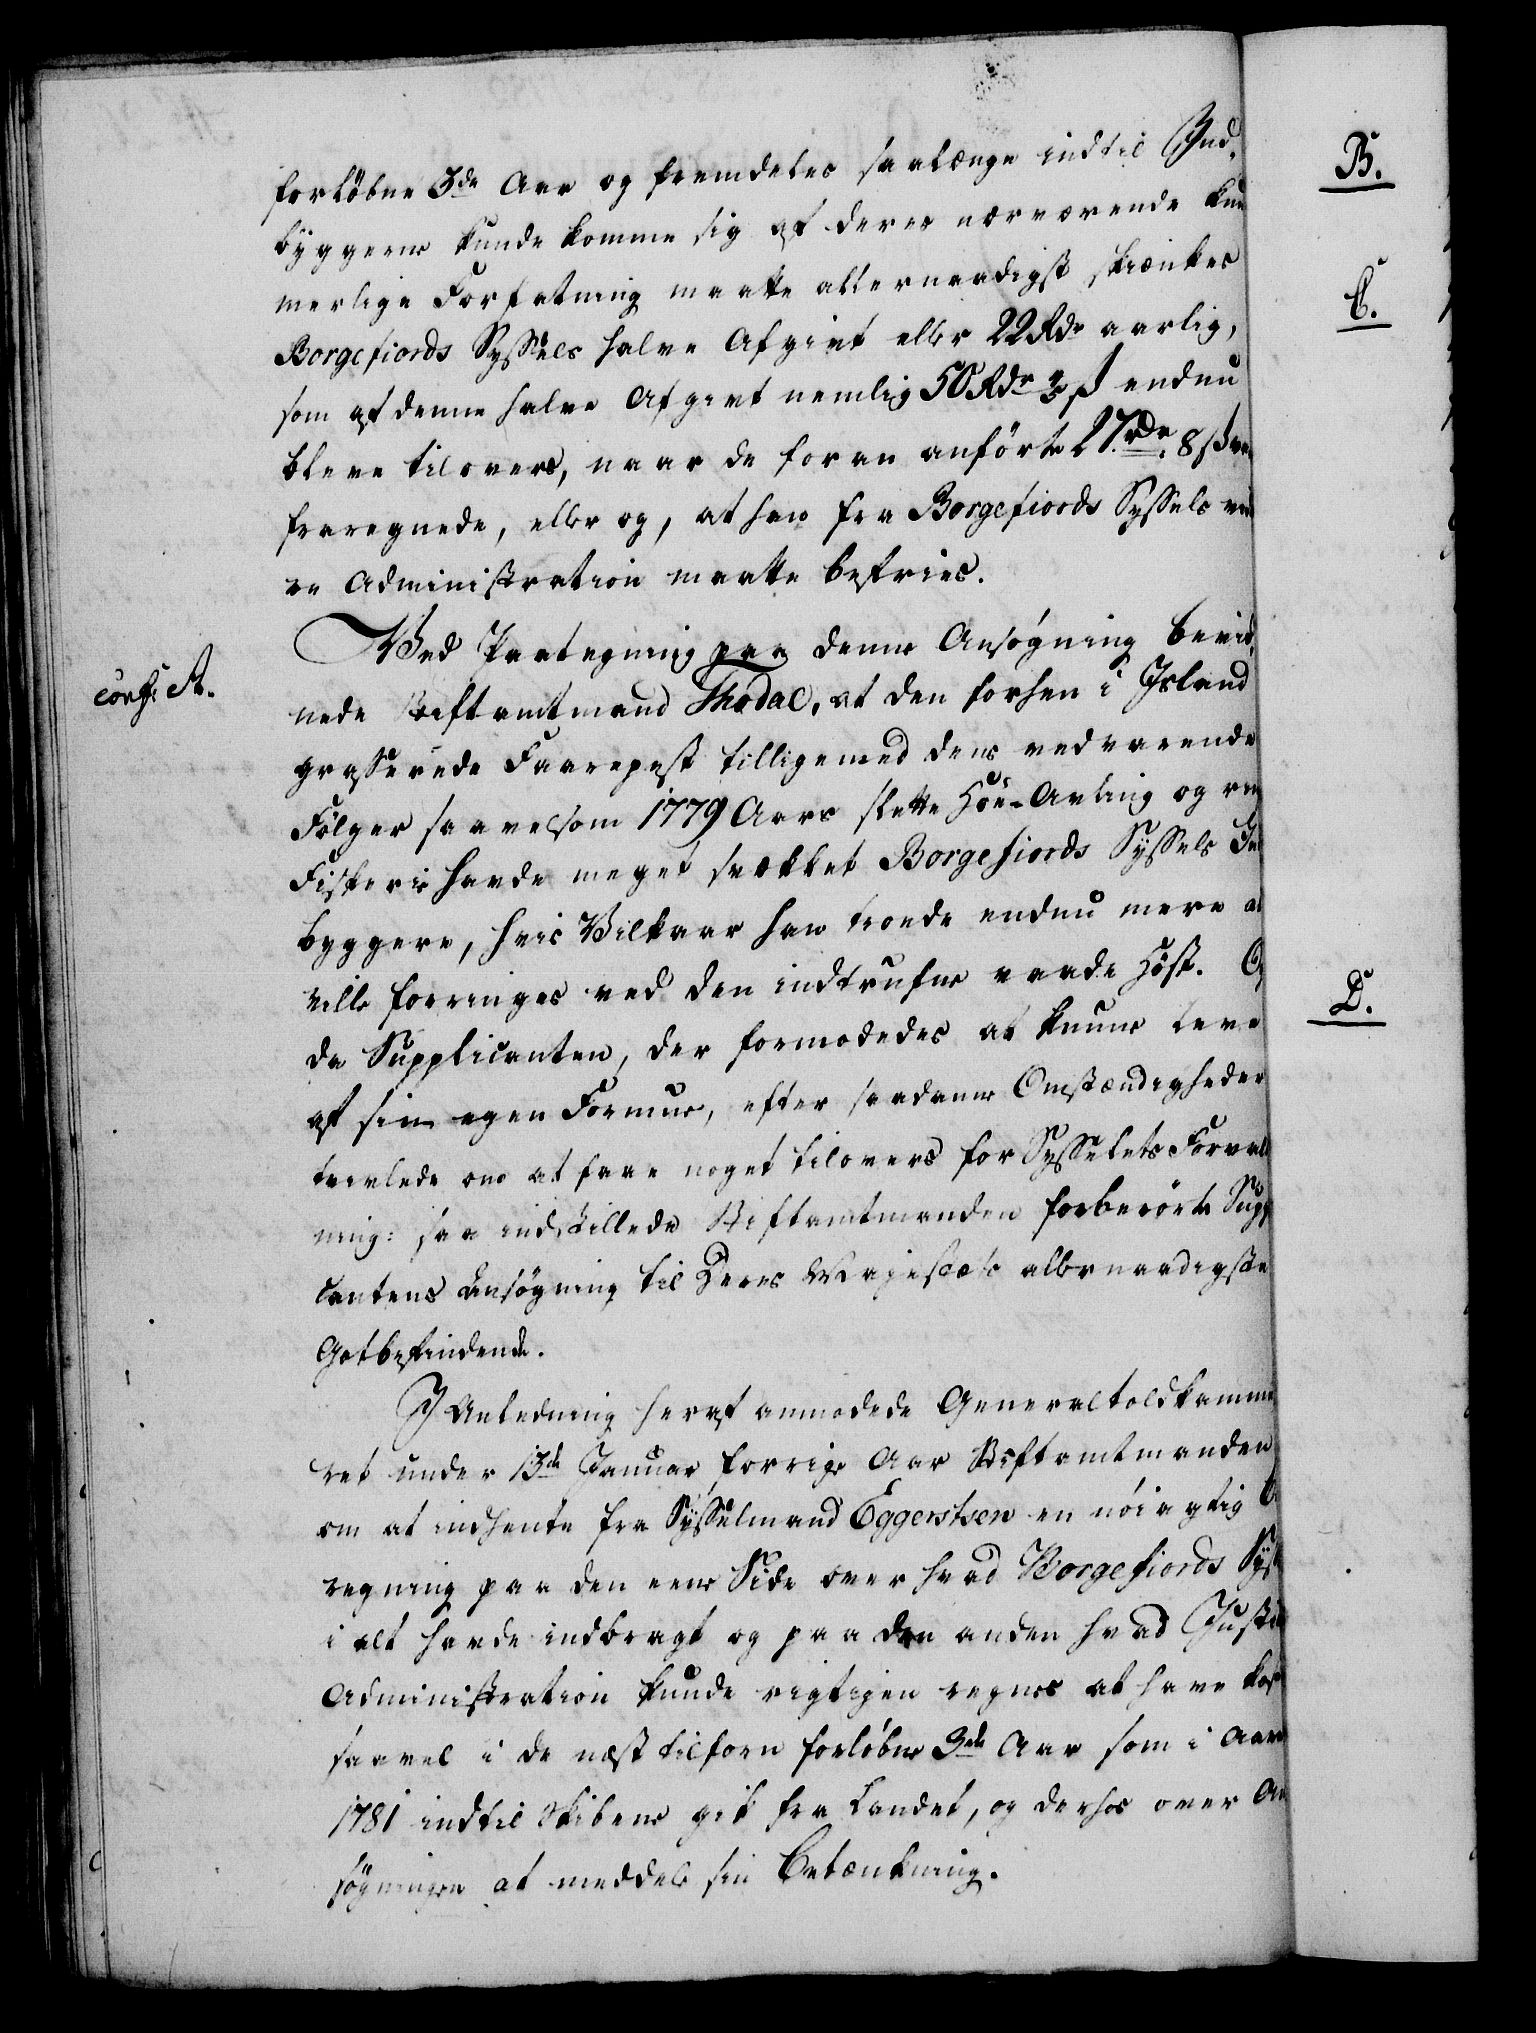 forløbne 3de Aar og fremdeles saalænge indtil Ind-
byggerne kunde komme sig af deres nærværende kum
merlige Forfatning maatte allernaadigst skiænkes
Borgefiords Syssels halve Afgivt eller 22 Rdr aarlig,
som af denne halve Afgivt nemlig 50 Rdr 3 ß endnu
bleve tilovers, naar de foran anførte 27 rdr. 8 ß
fraregnede, eller og, at han fra Borgefiords Syssels vide
re Administration maatte befries.
Ved Paategning paa denne Ansøgning bevid-
conf: A.
nede Stiftamtmand Thodal, at den forhen i Island
grasserede Faarepest tilligemed dens vedvarende
Følger saavelsom 1779 Aars slette Høe-Avling og
Fiskerie havde meget svækket Borgefiords Syssels Ind
byggere, hvis Vilkaar han troede endnu mere at
ville forringes ved den indtrufne vaade Høst. Og
da Supplicanten, der formodedes at kunne leve
af sin egen Formue, efter saadanne Omstændigheder
tvivlede om at have noget tilovers for Sysselets Forvalt
ning: saa indstillede Stiftamtmanden forberørte Suppli
cantens Ansøgning til Deres Majestæts allernaadigste
Gotbefindende.
I Anledning heraf anmodede Generaltoldkamme
ret under 13de Januar forrige Aar Stiftamtmanden
om at indhente fra Sysselmand Eggertsen en nøiagtig Be
regning paa den eene Side over hvad Borgefiords Syssel
i alt havde indbragt og paa den anden hvad Justitiens
Administration kunde rigtigen regnes at have kostet
saavel i de næst tilforn forløbne 3de Aar som i Aaret
1781 indtil Skibene gik fra Landet, og derhos over An
søgningen at meddele sin Betænkning.
B.
C.
D.